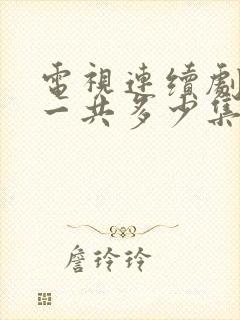 電視連續劇
一共多少集
詹玲玲